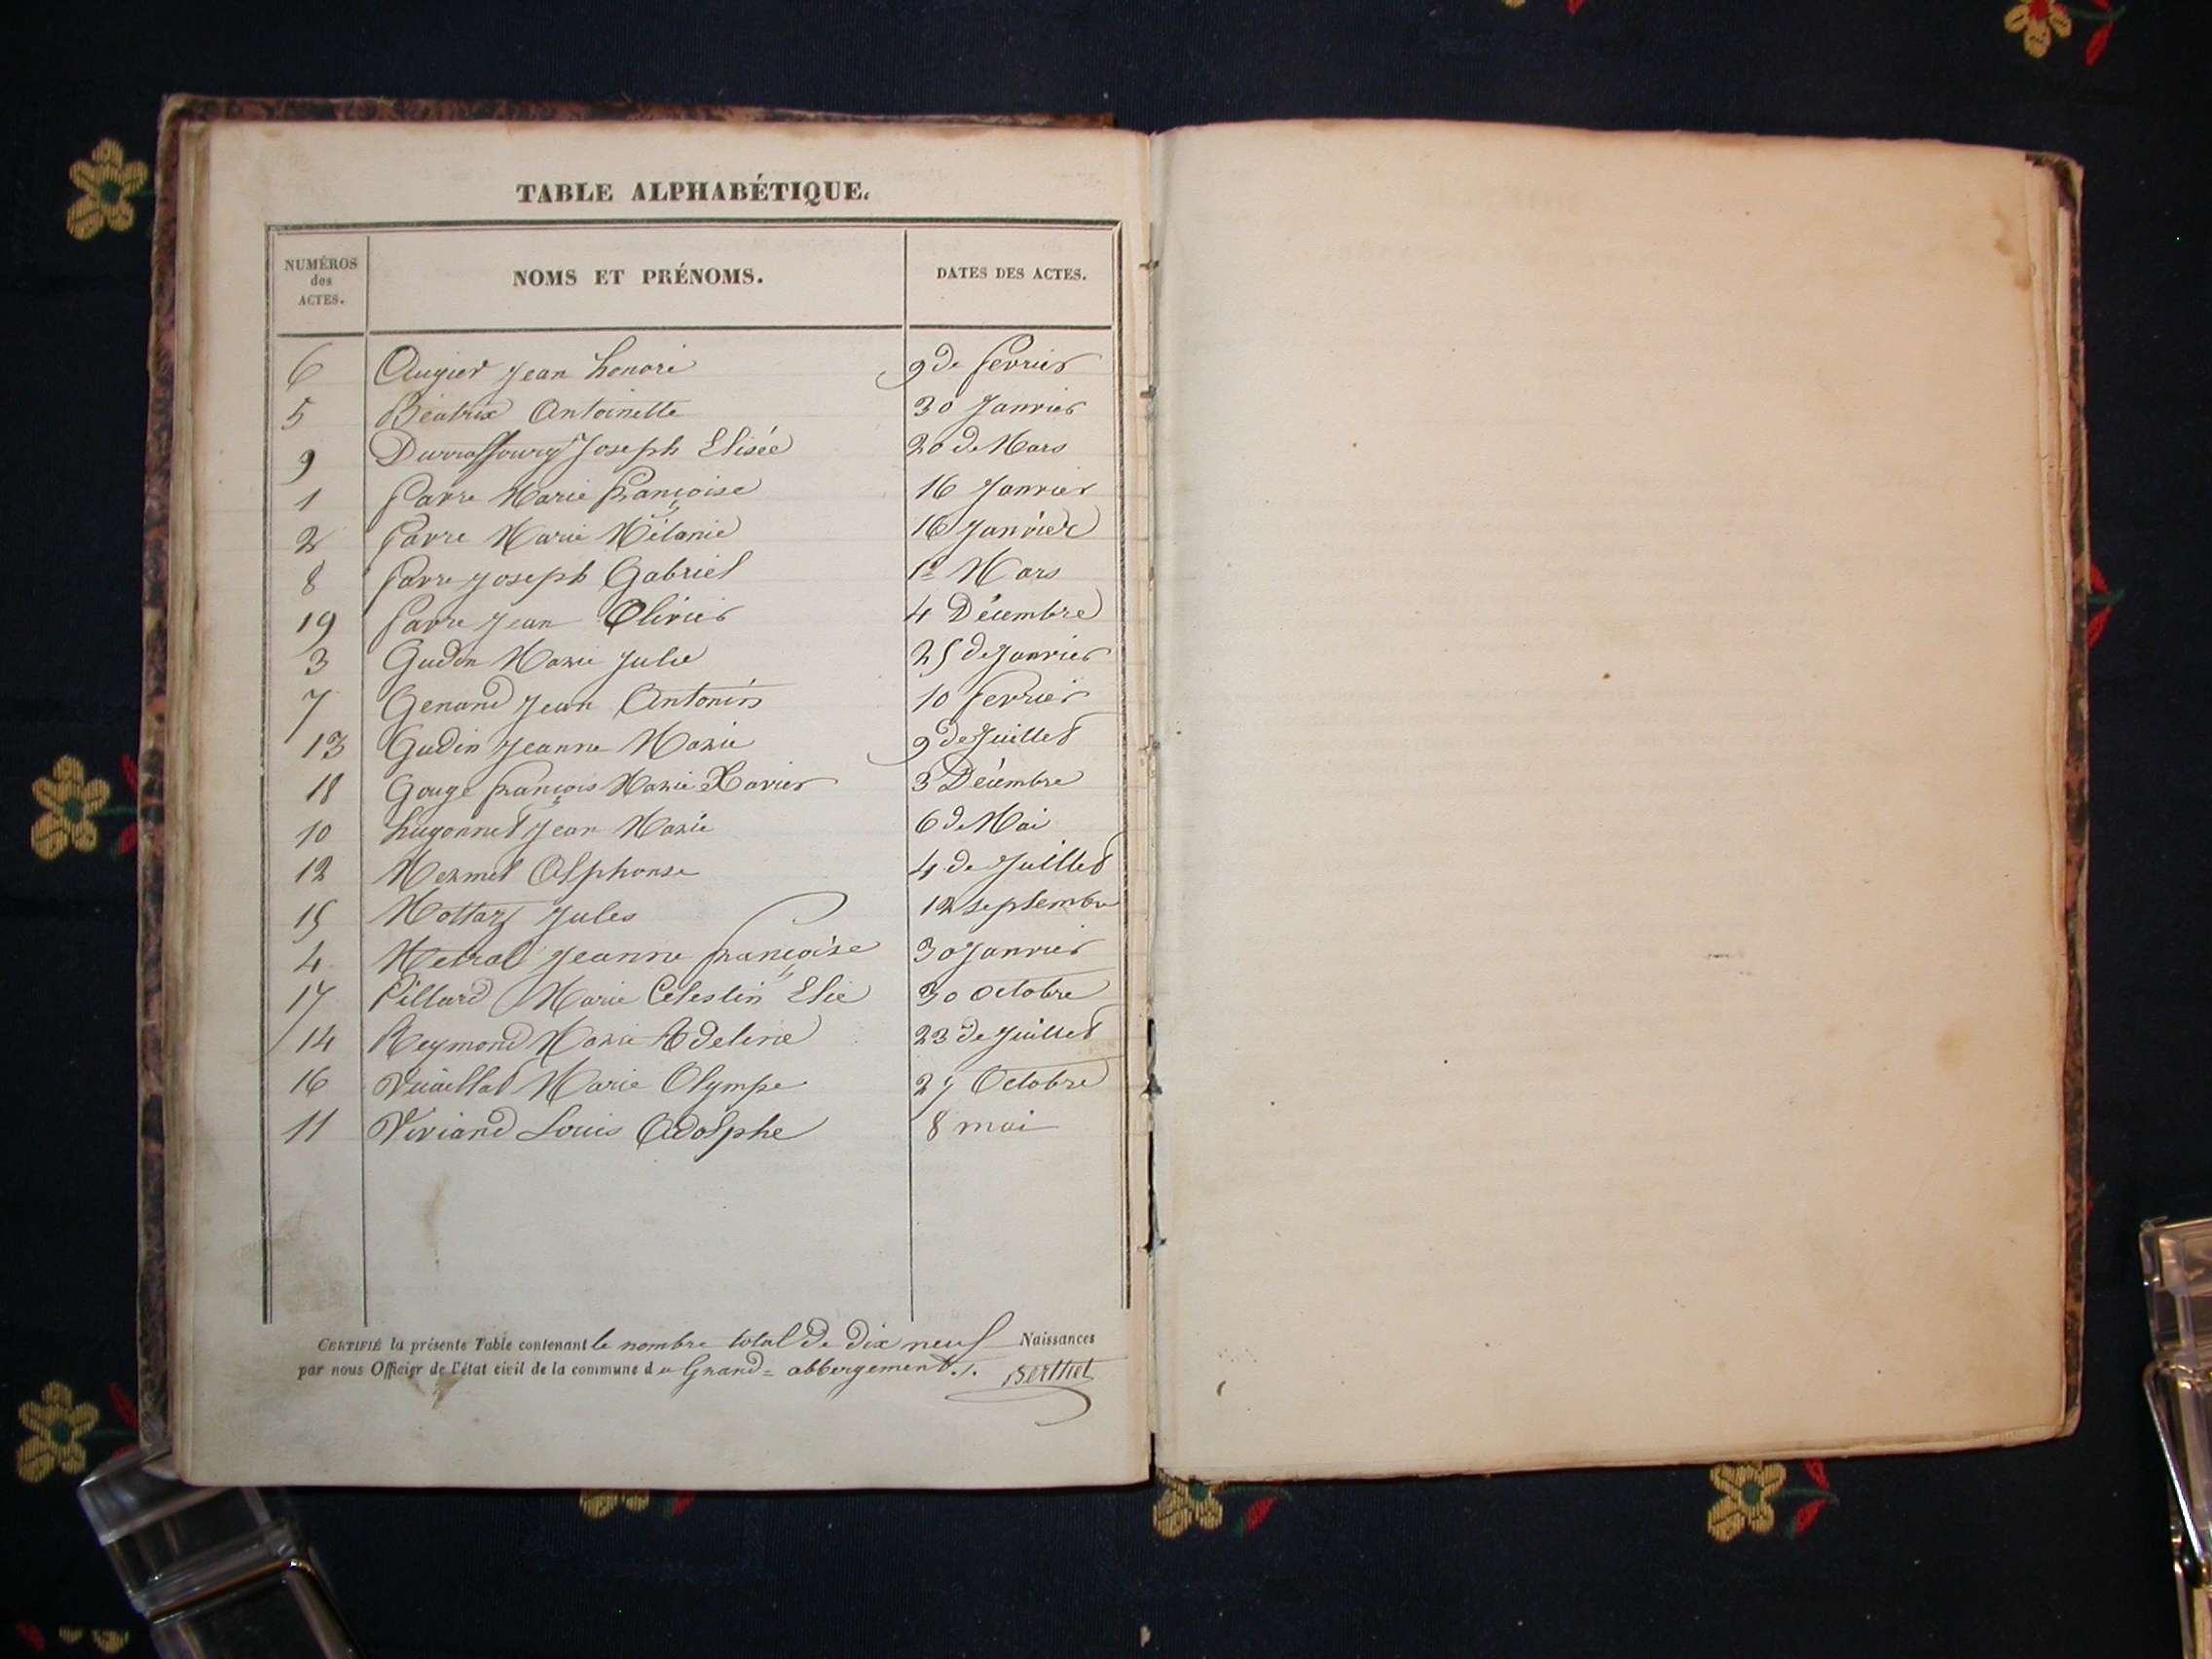 TABLE ALPHABÉTIQUE.
NUMÉROS des ACTES. NOMS ET PRÉNOMS. DATES DES ACTES.
6 Augier Jean honoré 9 de fevrier
5 Béatrix Antoinette 30 Janvier
9 Durraffourg Joseph Elisée 20 de Mars
1 favre Marie françoise 16 Janvier
2 favre Marie Mélanie 16 Janvier
8 favre joseph Gabriel 1er Mars
19 favre jean Olivier 4 Décembre
3 Gudin Marie julie 25 de Janvier
7 Genand jean Antonin 10 fevrier
13 Gudin jeanne Marie 9 de Juillet
18 Gouge françois Marie Xavier 3 Décembre
10 hugonnet jean Marie 6 de Mai
12 Mermet Alphonse 4 de Juillet
15 Mottaz jules 12 septembre
4 Metral jeanne françoise 30 Janvier
17 Pillard Marie Celestin Elie 30 Octobre
14 Reymond Marie Adeline 23 de Juillet
16 Vuaillat Marie Olympe 27 Octobre
11 Viviand Louis Adolphe 8 mai
CERTIFIÉ la présente Table contenant le nombre total de dix neuf Naissances
par nous Officier de l'état civil de la commune du Grand=abbergement. /. Berthet